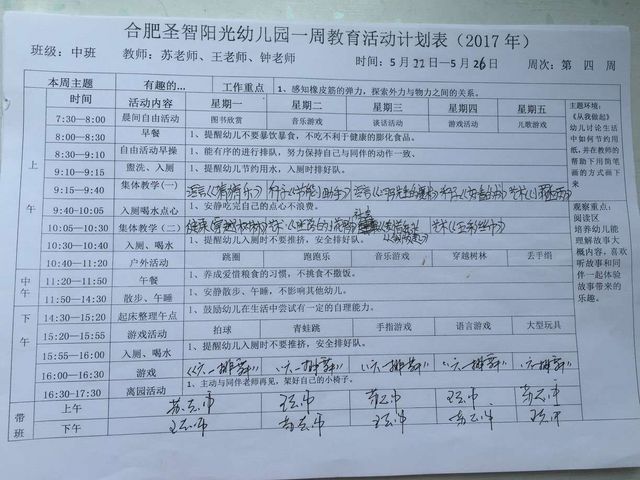 合肥圣智阳光幼儿园一周教育活动计划表（2017 年）
班级：中班 教师：苏老师、王老师、钟老师 时间：5 月 22 日—5 月 26 日 周次：第 四 周
本周主题 有趣的... 工作重点 1、感知橡皮筋的弹力，探索外力与物力之间的关系。
时间 活动内容 星期一 星期二 星期三 星期四 星期五
上午
7:30—8:00 晨间自由活动 图书欣赏 音乐游戏 谈话活动 游戏活动 儿歌游戏
8:00—8:30 早餐 1、提醒幼儿不要暴饮暴食，不吃不利于健康的膨化食品。
8:30—9:10 自由活动早操 1、能有序的进行排队，努力保持自己与同伴的动作一致、
9:10—9:15 盥洗、入厕 1、提醒幼儿节约用水，入厕时排好队。
9:15—9:40 集体教学（一）
9:40—10:05 入厕喝水点心 1、安静吃完自己的点心不浪费。
10:05—10:30 集体教学（二）
10:30—10:40 入厕、喝水 1、提醒幼儿入厕时不要推挤，安全排好队。
10:40—11:20 户外活动 跳圈 跑跑乐 音乐游戏 穿越树林 丢手绢
中午
11:20—11:50 午餐 1、养成爱惜粮食的习惯，不挑食不撒饭。
11:50—14:30 散步、午睡 1、安静散步、午睡，不影响其他幼儿。
下午
14:30—15:20 起床整理午点 1、鼓励幼儿在生活中尝试有一定的自理能力。
15:20—15:55 游戏活动 拍球 青蛙跳 手指游戏 语言游戏 大型玩具
15:55—16:00 入厕、喝水 1、提醒幼儿入厕时不要推挤，安全排好队。
16:00—16:30 游戏 《六一排舞》 《六一排舞》 《六一排舞》 《六一排舞》 《六一排舞》
16:30—17:30 离园活动 1、主动与同伴老师再见，架好自己的小椅子。
带班 上午
下午
主题环境：
《从我做起》
幼儿讨论生活
中如何节约用
纸，并在教师的
帮助下用简笔
画的方式画下
来
观察重点：
阅读区
培养幼儿能
理解故事大
概内容，喜欢
听故事和同
伴一起体验
故事带来的
乐趣。